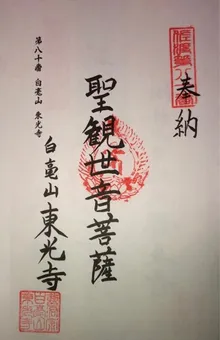 奉納
聖観世音菩薩
第八十番 白毫山 東光寺
白毫山 東光寺